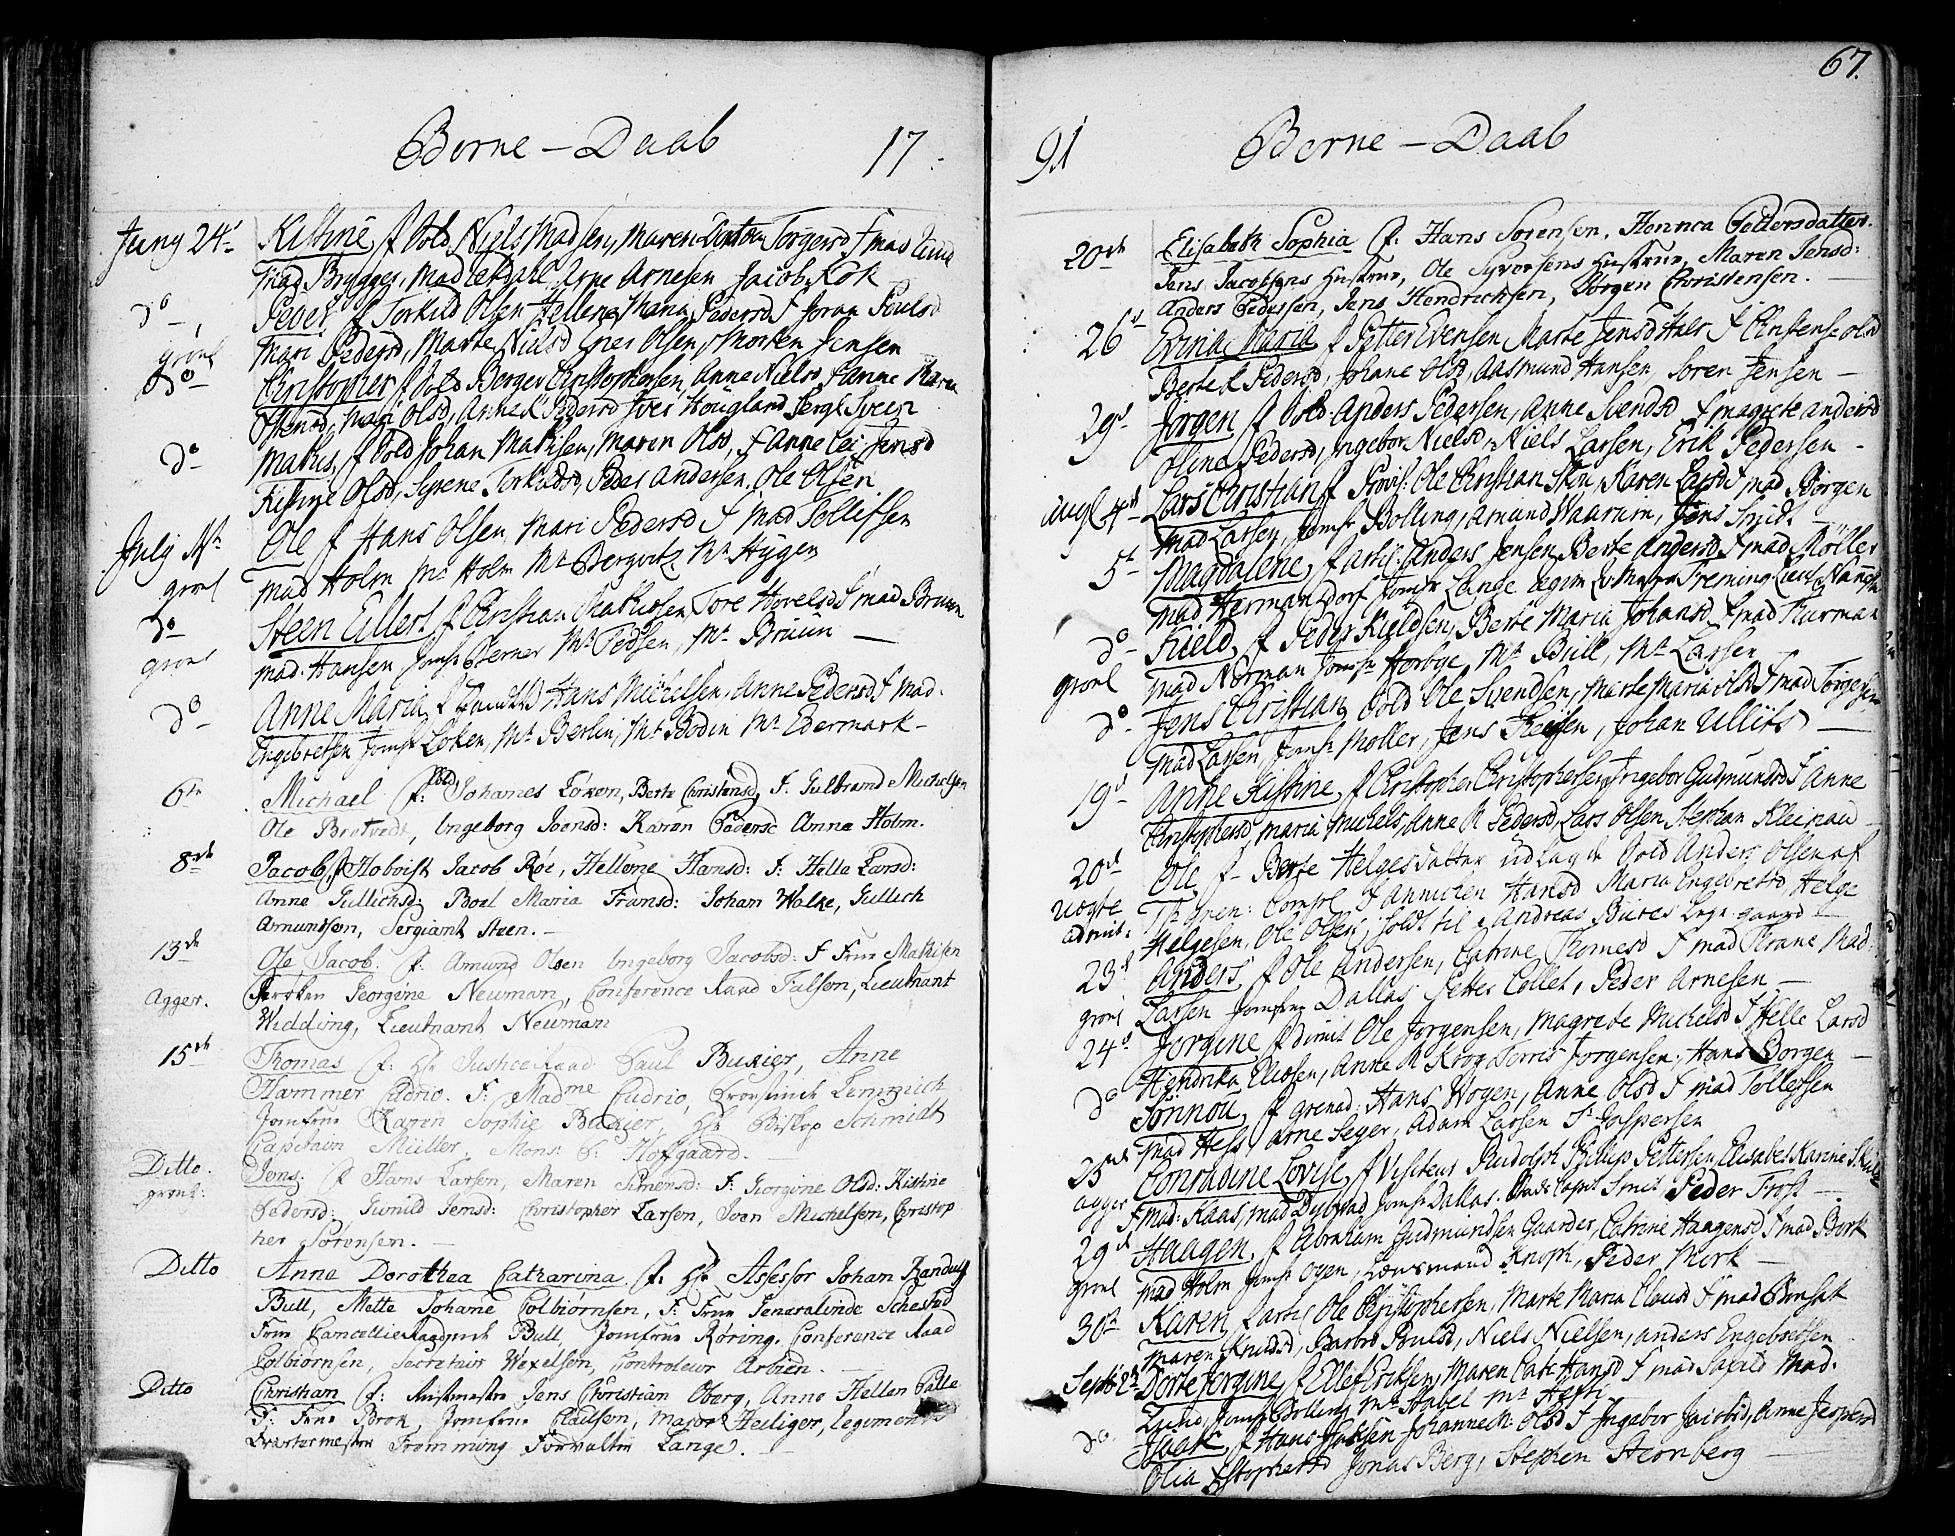 67.
Børne – Daab 17
Juny 24de Kistine f. Sold Niels Madsen, Maren Torgersd F mad Lund
mad Brygger, mad Arne Arnesen Jacob Kok
do Peder f Torkild Olsen Hellene Maria Pedersd F Joran Poulsd
grønl Mari Pedersd, Marte Nielsd Iver Olsen, Morten Jensen
do Christopher f Sold Berger Christophersen, Anne Nielsd F Anne Maria
Ostensd, Mari Olsd, Anne K Pedersd Iver Hougland Sergt Sveen
do Mathis, f Sold Johan Mathisen, Maren Olsd, F Anne Lei Jensd
Kistine Olsd, Syrene Torkildsd, Peder Andersen, Ole Olsen
July 1st Ole f Hans Olsen, Mari Pedersd F mad Tollefsen
grønl mad Holm Mr Holm Mr Bergwitz Mr Hygen
do Steen Eilert f Christian Mathiesen Tore Hovelsd F mad Bruun
grønl mad. Hansen Jomfr Berner Mr Pedsen, Mr Bruun —
do Anne Maria f Hans Michelsen, Anne Pedersd F mad.
Engebretsen Jomfr Løken, Mr Berlin, Mr Bodin Mr Edermark –
6te Michael f: Sold Johannes Løken, Berte Christensd, F. Gulbrand Michelsen
Ole Brotvedt, Ingeborg Joensd: Karen Pedersd Anne Holm.
8de Jacob, f Hoboist Jacob Roe, Hellene Hansd: F: Helle Larsd:
Anne Gullichsd: Boel Maria Framsd: Johan Walke, Gullich
Amundsen, Sergiant Steen. –
13de Ole Jacob. f: Amund Olsen Ingeborg Jacobsd: F Frue Mathisen
Agger. Frøken Georgine Newman, Conference Raad Tulson, Lieutnant
Widding, Lieutnant Newman
15de Thomas f: Hr Justceraad Paul Bukier, Anne
Hammer Cudrio. F: Madme Cudrio, Lemmich
Jomfrue Karen Sophie Bukier, Hr Biskop Schmidt
Capitain Müller, Mons: C: Hofgaard. –
Ditto. Jens. f Hans Larsen, Maren Simensd: F: Georgine Olsd: Kistine
grønl: Pedersd: Gunild Jensd: Christopher Larsen, Iver Michelsen, Christop
her Sørensen. –
Ditto Anne Dorothea Catharina f: Hr Assessor Johan Randulf
Bull, Mette Johane Colbiørnsen, F: Frue Generalinde Schested
Frue Cancellieraadinde Bull, Jomfrue Røring, Conference Raad
Colbiørnsen, Secretair Wexelsen, Controleur Arbien. –
Ditto Christian f: Jens Christian Oberg, Anne Hellen Palle
F: Frue Brok, Jomfrue Claüsen, Major Heiliger, Regiments
Qvarteermester Fromming Forvalter Lange. –
91 Børne – Daab
20de Elisabeth Sophia f: Hans Sørensen, Hennrca Pettersdatter.
Jens Jacobsens Hustrue, Ole Syversens Hustrue, Maren Jensd:
Anders Pedersen, Jens Hendrichsen, Jörgen Christensen. –
26de Evinia Maria f Petter Evensen Marte Jensd F Christense Olsd
Berte K Pedersd, Johane Olsd, Aasmund Hansen, Soren Jensen –
29d Jorgen f Sold Anders Pedersen, Anne Svendsd F Magrete Andersd
Oline Pedersd, Ingebor Nielsd, Niels Larsen, Erik Pedersen –
Augt 4de Lars Christian f Ole Christian Skøu, Karen Larsd F mad Borgen
mad Larsen, Jomfr Bolling, Amund Waarum, Jens Smidt
5t Magdalene, f Anders Jensen Berte Andersd F mad Møller
mad Hermandorf Jomfr Lange
do Kield f Peder Kieldsen, Berte Maria Johansd F mad Hurman
grønl mad Norman Jomfr Horbye, Mr Bull, Mr Larsen
do Jens Christian Sold Ole Svendsen, Marte Maria Olsd F mad Torgersen
mad Larsen Jomfr Moller, Jens Jensen, Johan Ullits –
19d Anne Kistine f Christopher Christophersen, Ingebor Gudmundsd F Anne
Christophersd Maria Michelsd, Anne K Pedersd, Lars Olsen Stephan Kleinau –
20de Ole f – Berte Helgesdatter udlagde Sold Anders Olsen af
uægte F Annichen Hansd Maria Engebretsd, Helge
Helgesen, Ole Olsen, foldt til Andreas gaard –
23d Anders f Ole Andersen, Catrine Thomesd F mad Krane Mad.
grønl Larsen Jomfrue Dallas Petter Collet, Peder Arnesen –
24d Jorgine f dimit Ole Jorgensen, Magrete Michelsd F Helle Larsd
Hendrika Eliosen, Anne M Krog Torris Jorgensen, Hans Borgen –
do Sønnou f grenad: Hans Wogen, Anne Olsd F mad Tollefsen
mad Hess, Arne Seyer, Adam Larsen S: Jaspersen
25de Conradine Lovise f Visiteur Rudolph Philip Pettersen, Elisabet Karine
agger F mad: Kaas, mad Dybvad Jomfr Dallas. Smit Peder Frost –
29d Haagen, f Abraham Gudmundsen Gaarder, Catrine Haagensd F mad Bork
grønl mad Holm Jomfr Ogen, Lensmand Knoph, Peder Mork –
30te Karen Ole Christophersen, Marte Maria Clausd F mad
Maren Knudsd, Barbro Poulsd, Niels Nielsen, Anders Engebretsen –
Septb 2d Dorte Jorgine f Ellef Eriksen, Maren Cat: Hansd F mad Mad.
Lund, Jomfr Bolling Mr Habel Mr Hefti
do Isaak, f Hans Johanneck Olsd F Ingebor Jacobsd, Anne Jespersd
Olia Jonas Berg, Stephen Sternberg –